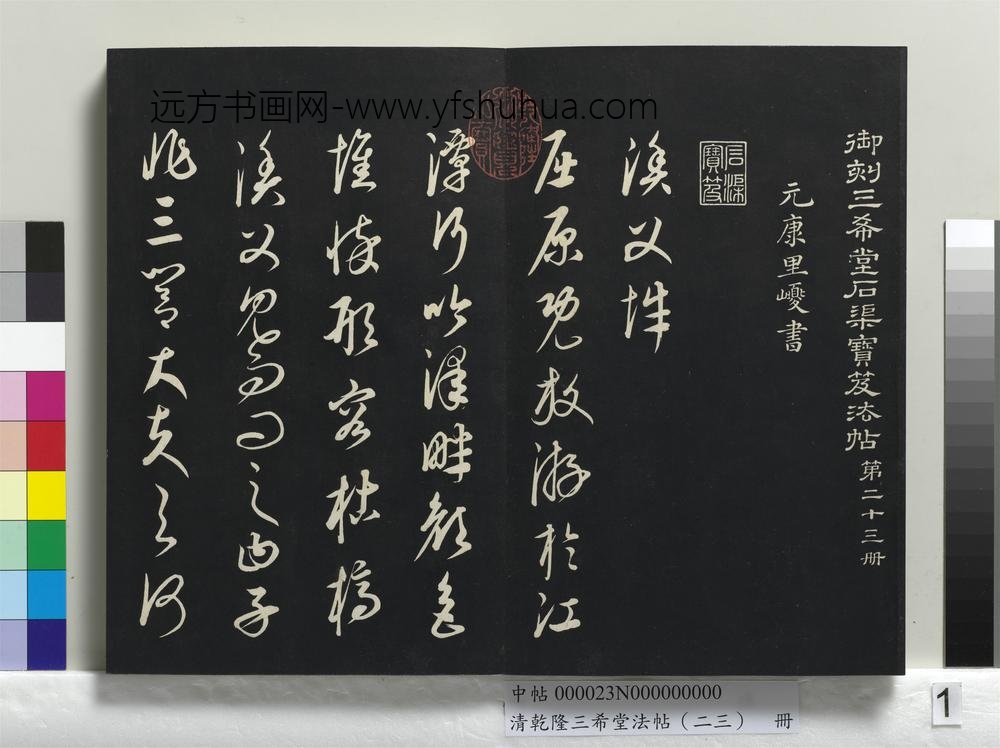 御刻三希堂石渠寶笈法帖第二十三册
元康里巎書
石渠寶笈
漁父辭
屈原既放游於江
潭行吟澤畔顏色
憔悴形容枯槁
漁父見而問之曰子
非三閭大夫與何
远方书画网-www.yfshuhua.com
中帖 000023N000000000
清乾隆三希堂法帖（二三） 冊
1